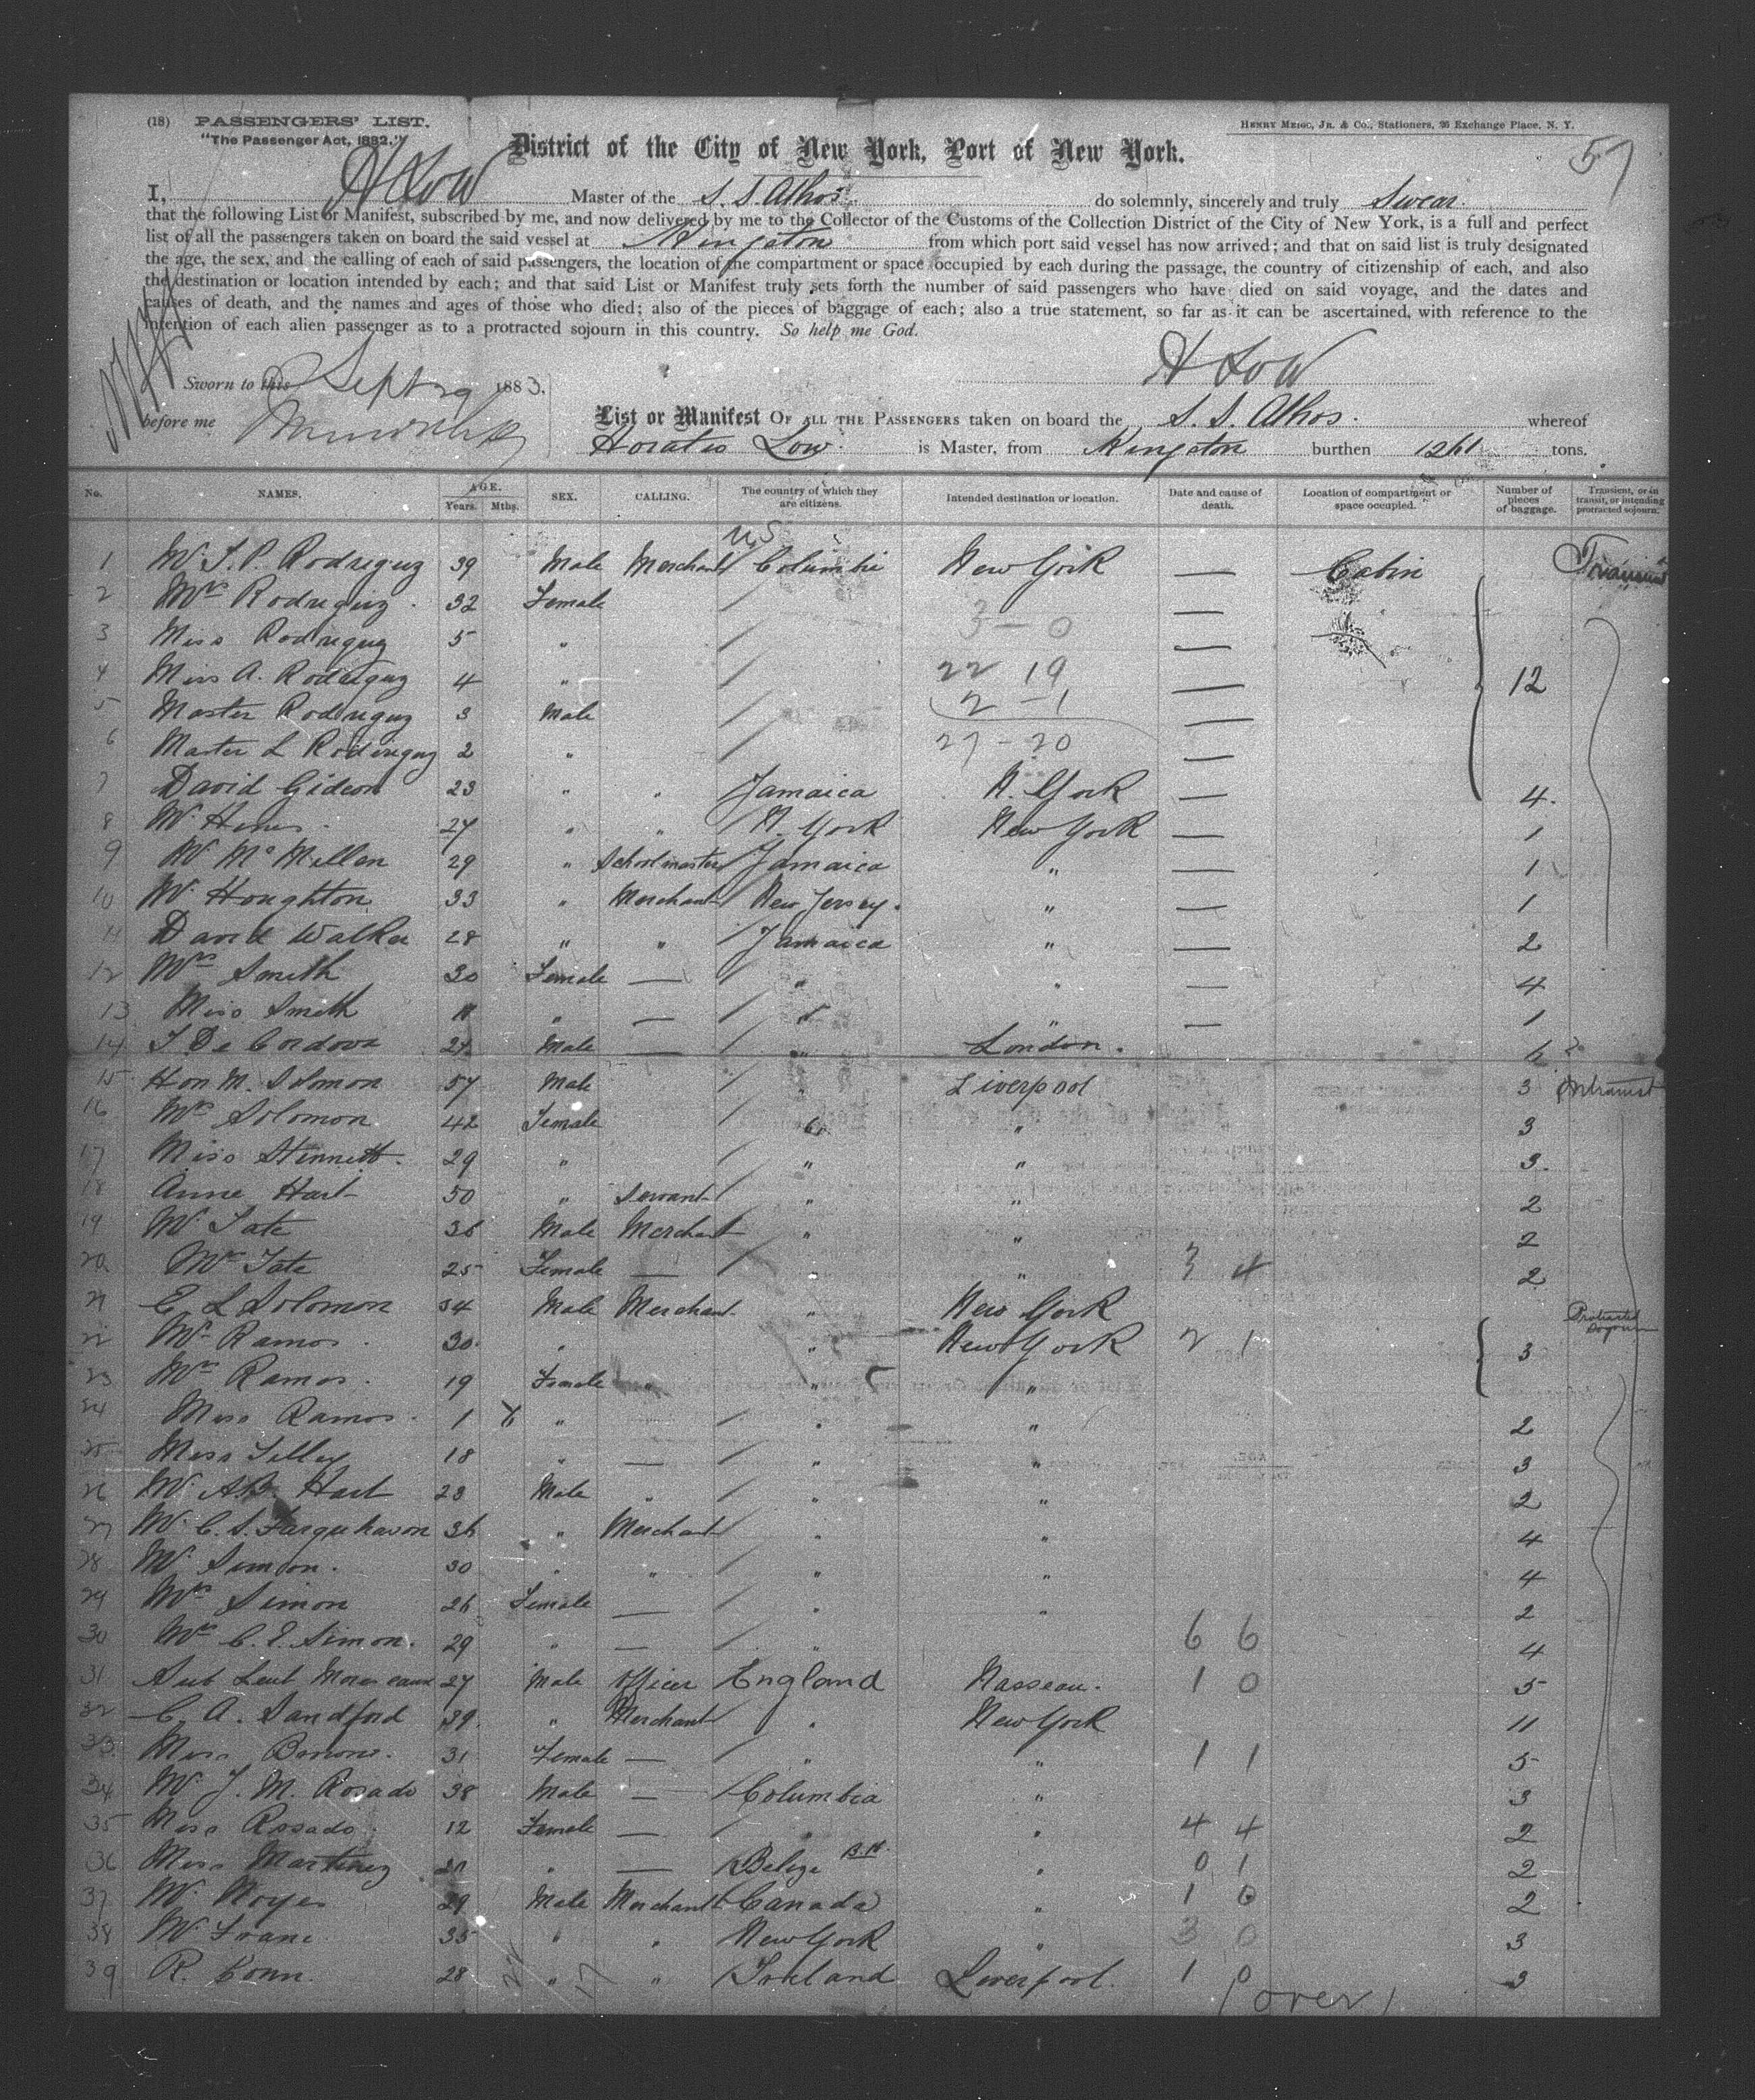 (18) PASSENGERS' LIST.
"The Passenger Act, 1882."
HENRY MEIGS, JR. & CO., Stationers, 26 Exchange Place, N. Y.
57
District of the City of New York, Port of New York.
I, H Low Master of the S. S. Athos do solemnly, sincerely and truly Swear
that the following List or Manifest, subscribed by me, and now delivered by me to the Collector of the Customs of the Collection District of the City of New York, is a full and perfect
list of all the passengers taken on board the said vessel at Kingston from which port said vessel has now arrived; and that on said list is truly designated
the age, the sex, and the calling of each of said passengers, the location of the compartment or space occupied by each during the passage, the country of citizenship of each, and also
the destination or location intended by each; and that said List or Manifest truly sets forth the number of said passengers who have died on said voyage, and the dates and
causes of death, and the names and ages of those who died; also of the pieces of baggage of each; also a true statement, so far as it can be ascertained, with reference to the
intention of each alien passenger as to a protracted sojourn in this country. So help me God.
H Low
Sworn to this Sept 29 1883.
before me
List or Manifest OF ALL THE PASSENGERS taken on board the S. S. Athos. whereof
Horatio Low is Master, from Kingston burthen 1261 tons.
No. NAMES. AGE. Years. Mths. SEX. CALLING. The country of which they are citizens. Intended destination or location. Date and cause of death. Location of compartment or space occupied. Number of pieces of baggage. Transient, or in transit, or intending protracted sojourn.
US
1 Mr. S. P. Rodriguez 39 Male Merchant Columbia New York — Cabin Transient
2 Mrs Rodriguez 32 Female —
3 Miss Rodriguez 5 " 3 – 0 —
4 Miss A. Rodriguez 4 " 22 19 — 12
5 Master Rodriguez 3 Male 2 – 1 —
6 Master L Rodriguez 2 " 27 – 20 —
7 David Gideon 23 " " Jamaica N. York — 4.
8 Mr. Hines 27 " " N. York New York — 1
9 Mr McMillan 29 " Schoolmaster Jamaica " — 1
10 Mr. Houghton 33 " Merchant New Jersey. " — 1
11 David Walker 28 " " Jamaica " — 2
12 Mrs Smith 30 Female — " " — 4
13 Miss Smith 11 " — " " — 1
14 De Cordova Male — " London. 6
15 Hon M. Solomon 57 Male " Liverpool 3 Intransit
16 Mrs Solomon 42 Female " " 3
17 Miss Stennett. 29 " " " 3.
18 Anne Hart 50 " Servant " " 2
19 Mr. Tate 36 Male Merchant " " 2
20 Mrs Tate 25 Female — " " 3 4 2
21 E L Solomon 34 Male Merchant " New York Protracted Sojourn
22 Mr Ramos 30. " " New York 2 1 3
23 Mrs Ramos 19 Female " " "
24 Miss Ramos 1 " " " 2
25 Miss Tilley 18 " — " " 3
26 Mr. Hart 23 Male " " " 2
27 Mr. C. S. Farquharson 36 " Merchant " " 4
28 Mr. Simon. 30 " " " " 4
29 Mrs Simon 26 Female — " " 2
30 Mrs C. E. Simon. 29 " — " 6 6 4
31 Sub Leut 27 Male Officer England Nasseau. 1 0 5
32 C. A. Sandford 39. " Merchant " New York 11
33 Miss 31 Female — " " 1 1 5
34 Mr J. M. Rosado 38 Male — Columbia " 3
35 Miss Rosado 12 Female — " " 4 4 2
36 Miss Martinez " — Belize B.H. " 0 1 2
37 Mr. Noyes 29 Male Merchant Canada " 1 0 2
38 Mr 35 " " New York " 3 0 3
39 R. Conn. 28 " " Ireland Liverpool. 1 0 3
(over)